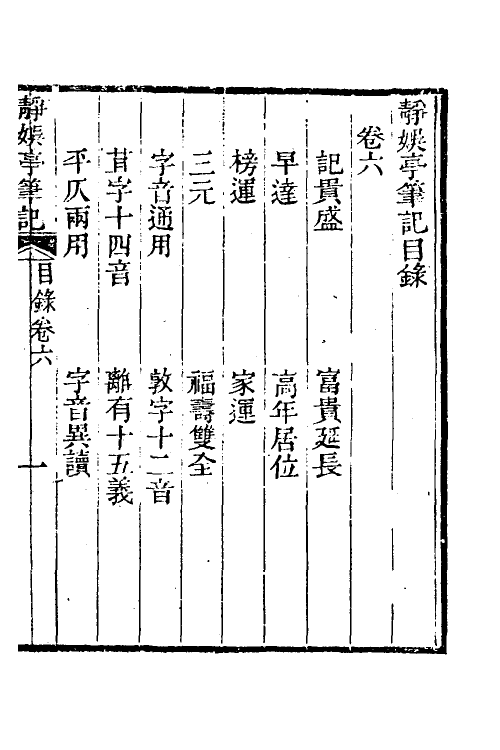 靜娛亭筆記目錄
卷六
記貫盛　富貴延長
早達　高年居位
榜運　家運
三元　福壽雙全
字音通用　敦字十二音
苴字十四音　離有十五義
平仄兩用　字音異讀
靜娛亭筆記　目錄卷六　一